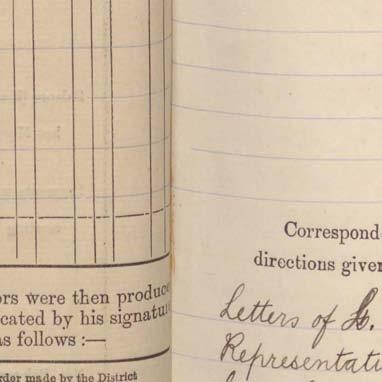 ors were then produce
cated by his signatu
as follows :—
rder made by the District
Correspond
directions given
Letters of
Representati